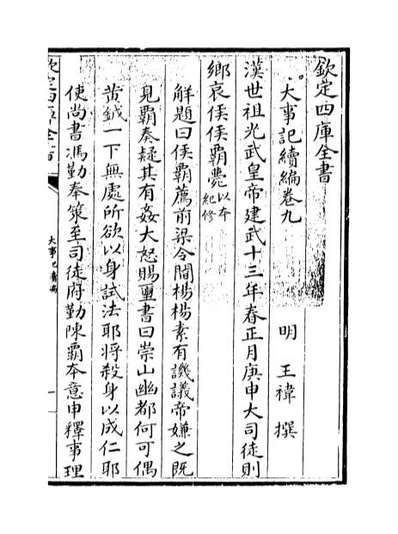 欽定四庫全書
大事記續編卷九
明 王禕 撰
漢世祖光武皇帝建武十三年春正月庚申大司徒則
鄉哀侯侯霸薨以本紀修
解題曰侯霸薦前梁令閻楊楊素有譏議帝嫌之既
見霸奏疑其有姦大怒賜璽書曰崇山幽都何可偶
黄鉞一下無處所欲以身試法耶將殺身以成仁耶
使尚書馮勤奉策至司徒府勤陳霸本意申釋事理